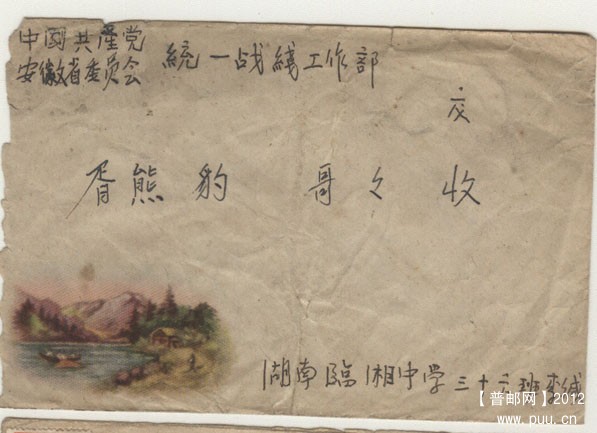 中國共產党
安徽省委员会 統一战綫工作部
交
胥熊豹 哥々 收
湖南臨湘中学三十六班李缄
【普邮网】2012
www.puu.cn